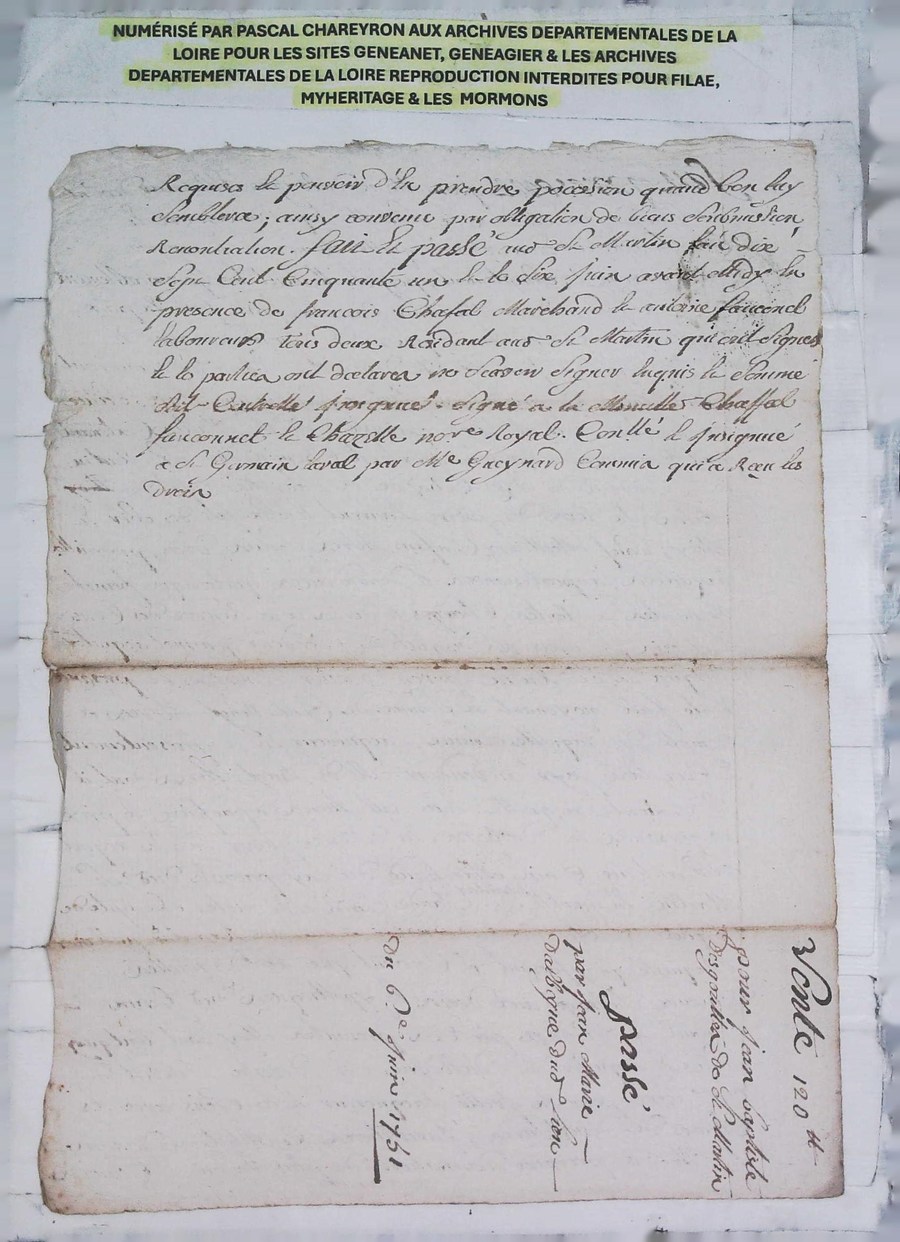 NUMÉRISÉ PAR PASCAL CHAREYRON AUX ARCHIVES DEPARTEMENTALES DE LA
LOIRE POUR LES SITES GENEANET, GENEAGIER & LES ARCHIVES
DEPARTEMENTALES DE LA LOIRE REPRODUCTION INTERDITES POUR FILAE,
MYHERITAGE & LES MORMONS
Requises Et pouvoir d'En prendre pocession quand bon luy
Semblera; ainsy convenu par obligation de biens Soubmission
Renontiation. fait Et passé aud St Martin L'an dix
Sept Cent Cinquante un Et le Six Juin avant Midy En
presence de francois Chafal Marchand Et antoine fauconet
Laboureur tous deux Residant aud St Martin qui ont Signes
Et les parties ont declarea ne Scavoir Signer Enquis Et Somme
Signé a la Minutte Chaffal
fauconnet Et Chazelle nore Royal. Conllé Et Insignué
a St Germain Laval par Me Gueynard Commis qui a Receu les
droits
Vente 120 ₶
pour jean baptiste
de St Martin
passé
par jean Marie
dud Lieu
du 6e Juin 1751